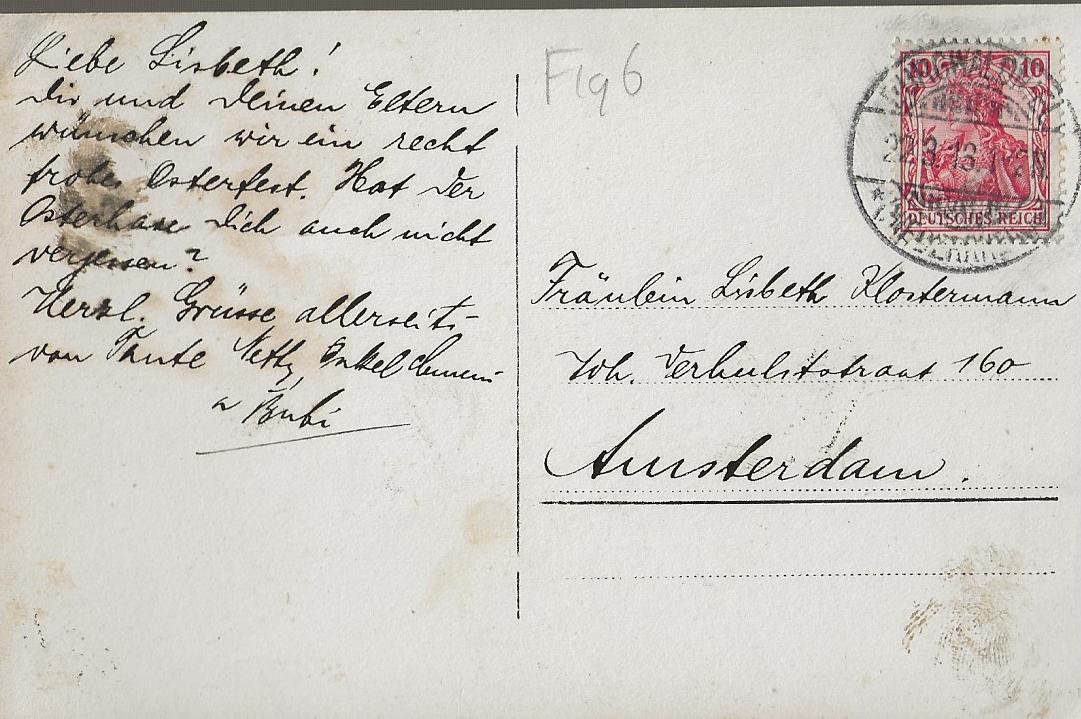 Liebe Lisbeth!
Dir und Deinen Eltern
wünschen wir ein recht
frohes Osterfest. Hat der
Osterhase Dich auch nicht
vergessen?
Herzl. Grüsse allerseits
von Tante Netty, Onkel
u Bubi
Fig 6
10 10
22.3.13.
DEUTSCHES REICH
Fräulein Lisbeth Klostermann
Joh. Verhulststraat 160
Amsterdam.